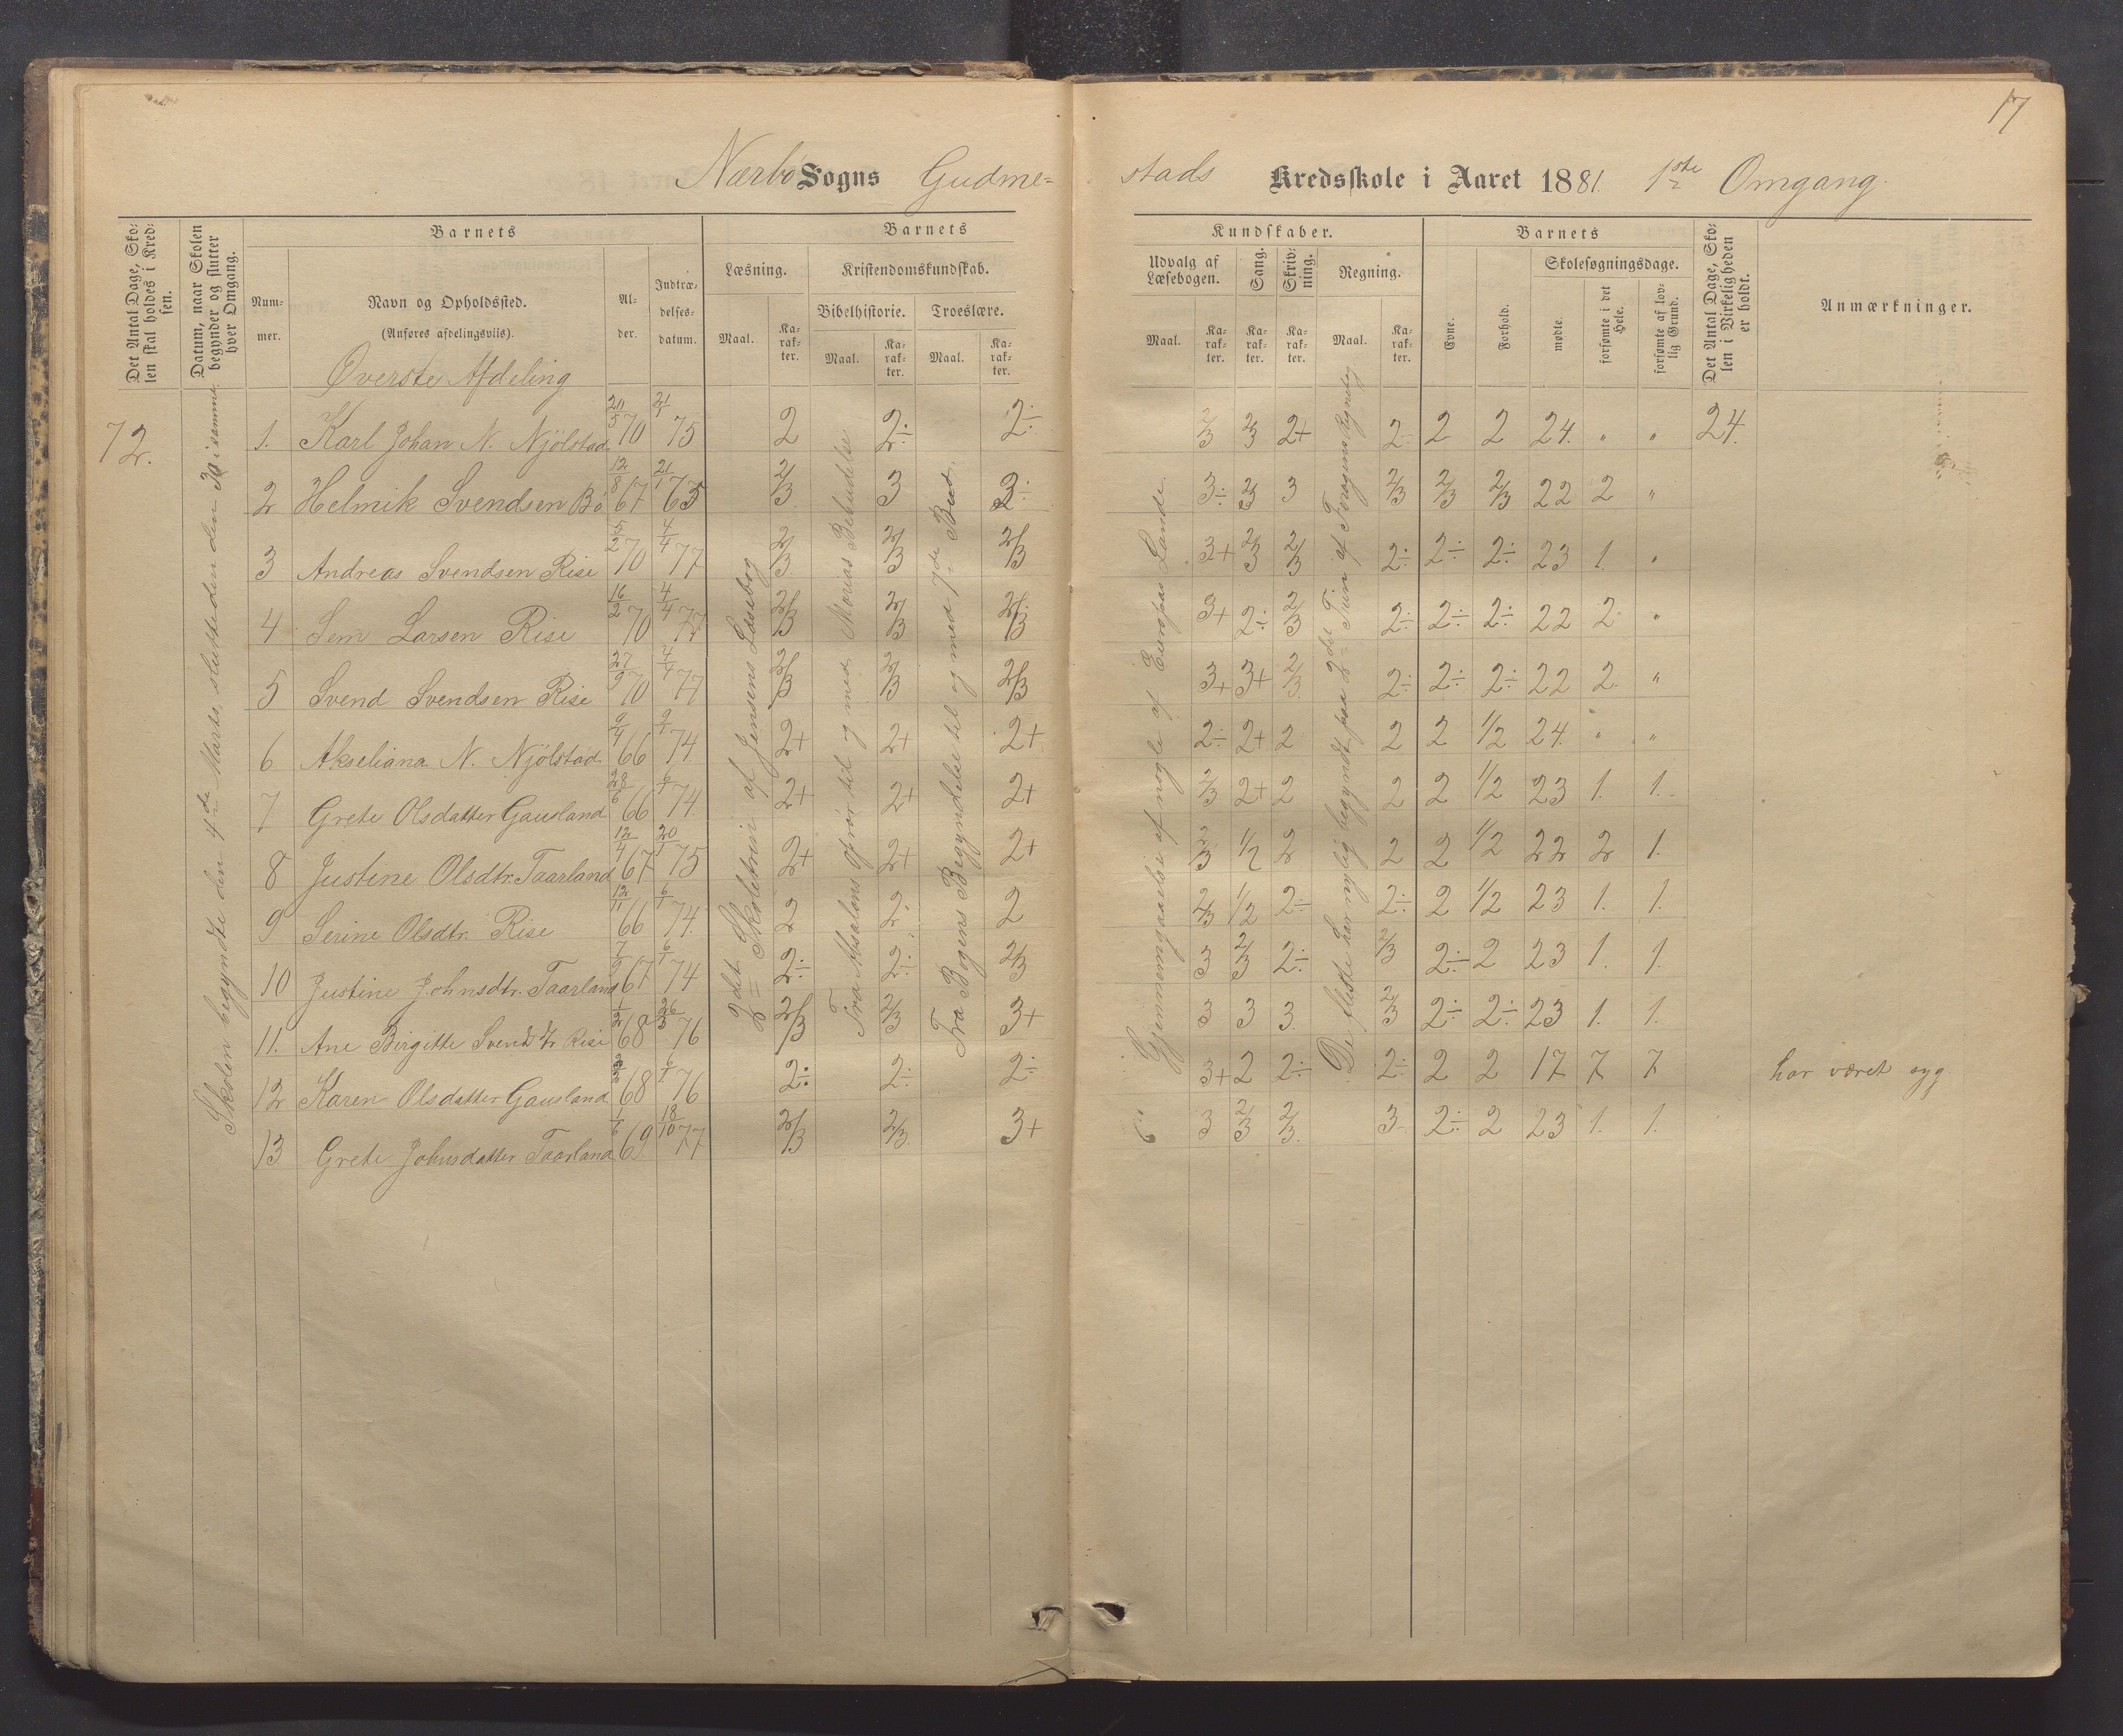 17
Nærbø Sogns Gudme-
stads Kredsskole i Aaret 1881. 1ste Omgang.
Det Antal Dage, Sko-
len skal holdes i Kred-
sen.
Datum, naar Skolen
begynder og slutter
hver Omgang.
Barnets
Num-
mer.
Navn og Opholdssted.
(Anføres afdelingsviis).
Al-
der.
Indtræ-
delses-
datum.
Barnets
Læsning.
Kristendomskundskab.
Bibelhistorie. Troeslære.
Maal. Ka-
rak-
ter.
Maal. Ka-
rak-
ter.
Maal. Ka-
rak-
ter.
Kundskaber.
Udvalg af
Læsebogen.
Sang.
Skriv-
ning.
Regning.
Maal. Ka-
rak-
ter.
Ka-
rak-
ter.
Ka-
rak-
ter.
Maal. Ka-
rak-
ter.
Barnets
Evne.
Forhold.
Skolesøgningsdage.
mødte.
forsømte i det
Hele.
forsømte af lov-
lig Grund.
Det Antal Dage, Sko-
len i Virkeligheden
er holdt.
Anmærkninger.
Øverste Afdeling
72.
Skolen begyndte den 4de Marts, sluttede den 30 i samme.
2det Skoletrin af Jensens Læsebog
Fra Absalons Oprør til og med Marias Bebudelse
Fra Bogens Begyndelse til og med 7de Bud.
Gjennemgaaelse af nogle af Europas Lande.
De fleste har nylig begyndt paa 2det Trin af Foragens Regnebog
1. Karl Johan N. Njölstad 70 21/1 75 2 2÷ 2÷ 2/3 2/3 2+ 2÷ 2 2 24. " " 24.
2 Helmik Svendsen Bö 12/8 67 21/1 65 2/3 3 3÷ 3÷ 2/3 3 2/3 2/3 2/3 22 2 "
3 Andreas Svendsen Rise 70 4/4 77 2/3 2/3 2/3 3+ 2/3 2/3 2÷ 2÷ 2÷ 23 1. "
4 Sem Larsen Rise 16/2 70 4/4 77 2/3 2/3 2/3 3+ 2÷ 2/3 2÷ 2÷ 2÷ 22 2 "
5 Svend Svendsen Rise 27/9 70 4/4 77 2/3 2/3 2/3 3+ 3+ 2/3 2÷ 2÷ 2÷ 22 2. "
6 Akseliana N. Njölstad 9/4 66 9/1 74 2+ 2+ 2+ 2÷ 2+ 2 2 2 1/2 24. " "
7 Grete Olsdatter Gausland 28/6 66 6/1 74 2+ 2+ 2+ 2/3 2+ 2 2 2 1/2 23 1. 1.
8 Justine Olsdtr. Taarland 12/4 67 20/1 75 2+ 2+ 2+ 2/3 1/2 2 2 2 1/2 22 2 1.
9 Serine Olsdtr. Rise 12/11 66 6/1 74. 2 2÷ 2 2/3 1/2 2÷ 2÷ 2 1/2 23 1. 1.
10 Justine Johnsdtr. Taarland 7/9 67 6/1 74 2÷ 2÷ 2/3 3 2/3 2÷ 2/3 2÷ 2 23 1. 1.
11. Ane Birgitte Svendsdtr Rise 1/2 68 26/3 76 2/3 2/3 3+ 3 3 3. 2/3 2÷ 2÷ 23 1. 1.
12 Karen Olsdatter Gausland 68 6/1 76 2÷ 2÷ 2÷ 3+ 2 2÷ 2÷ 2 2 17 7 7 har været syg.
13 Grete Johnsdatter Taarland 1/6 69 18/10 77 2/3 2/3 3+ 3 2/3 2/3. 3 2÷ 2 23 1. 1.